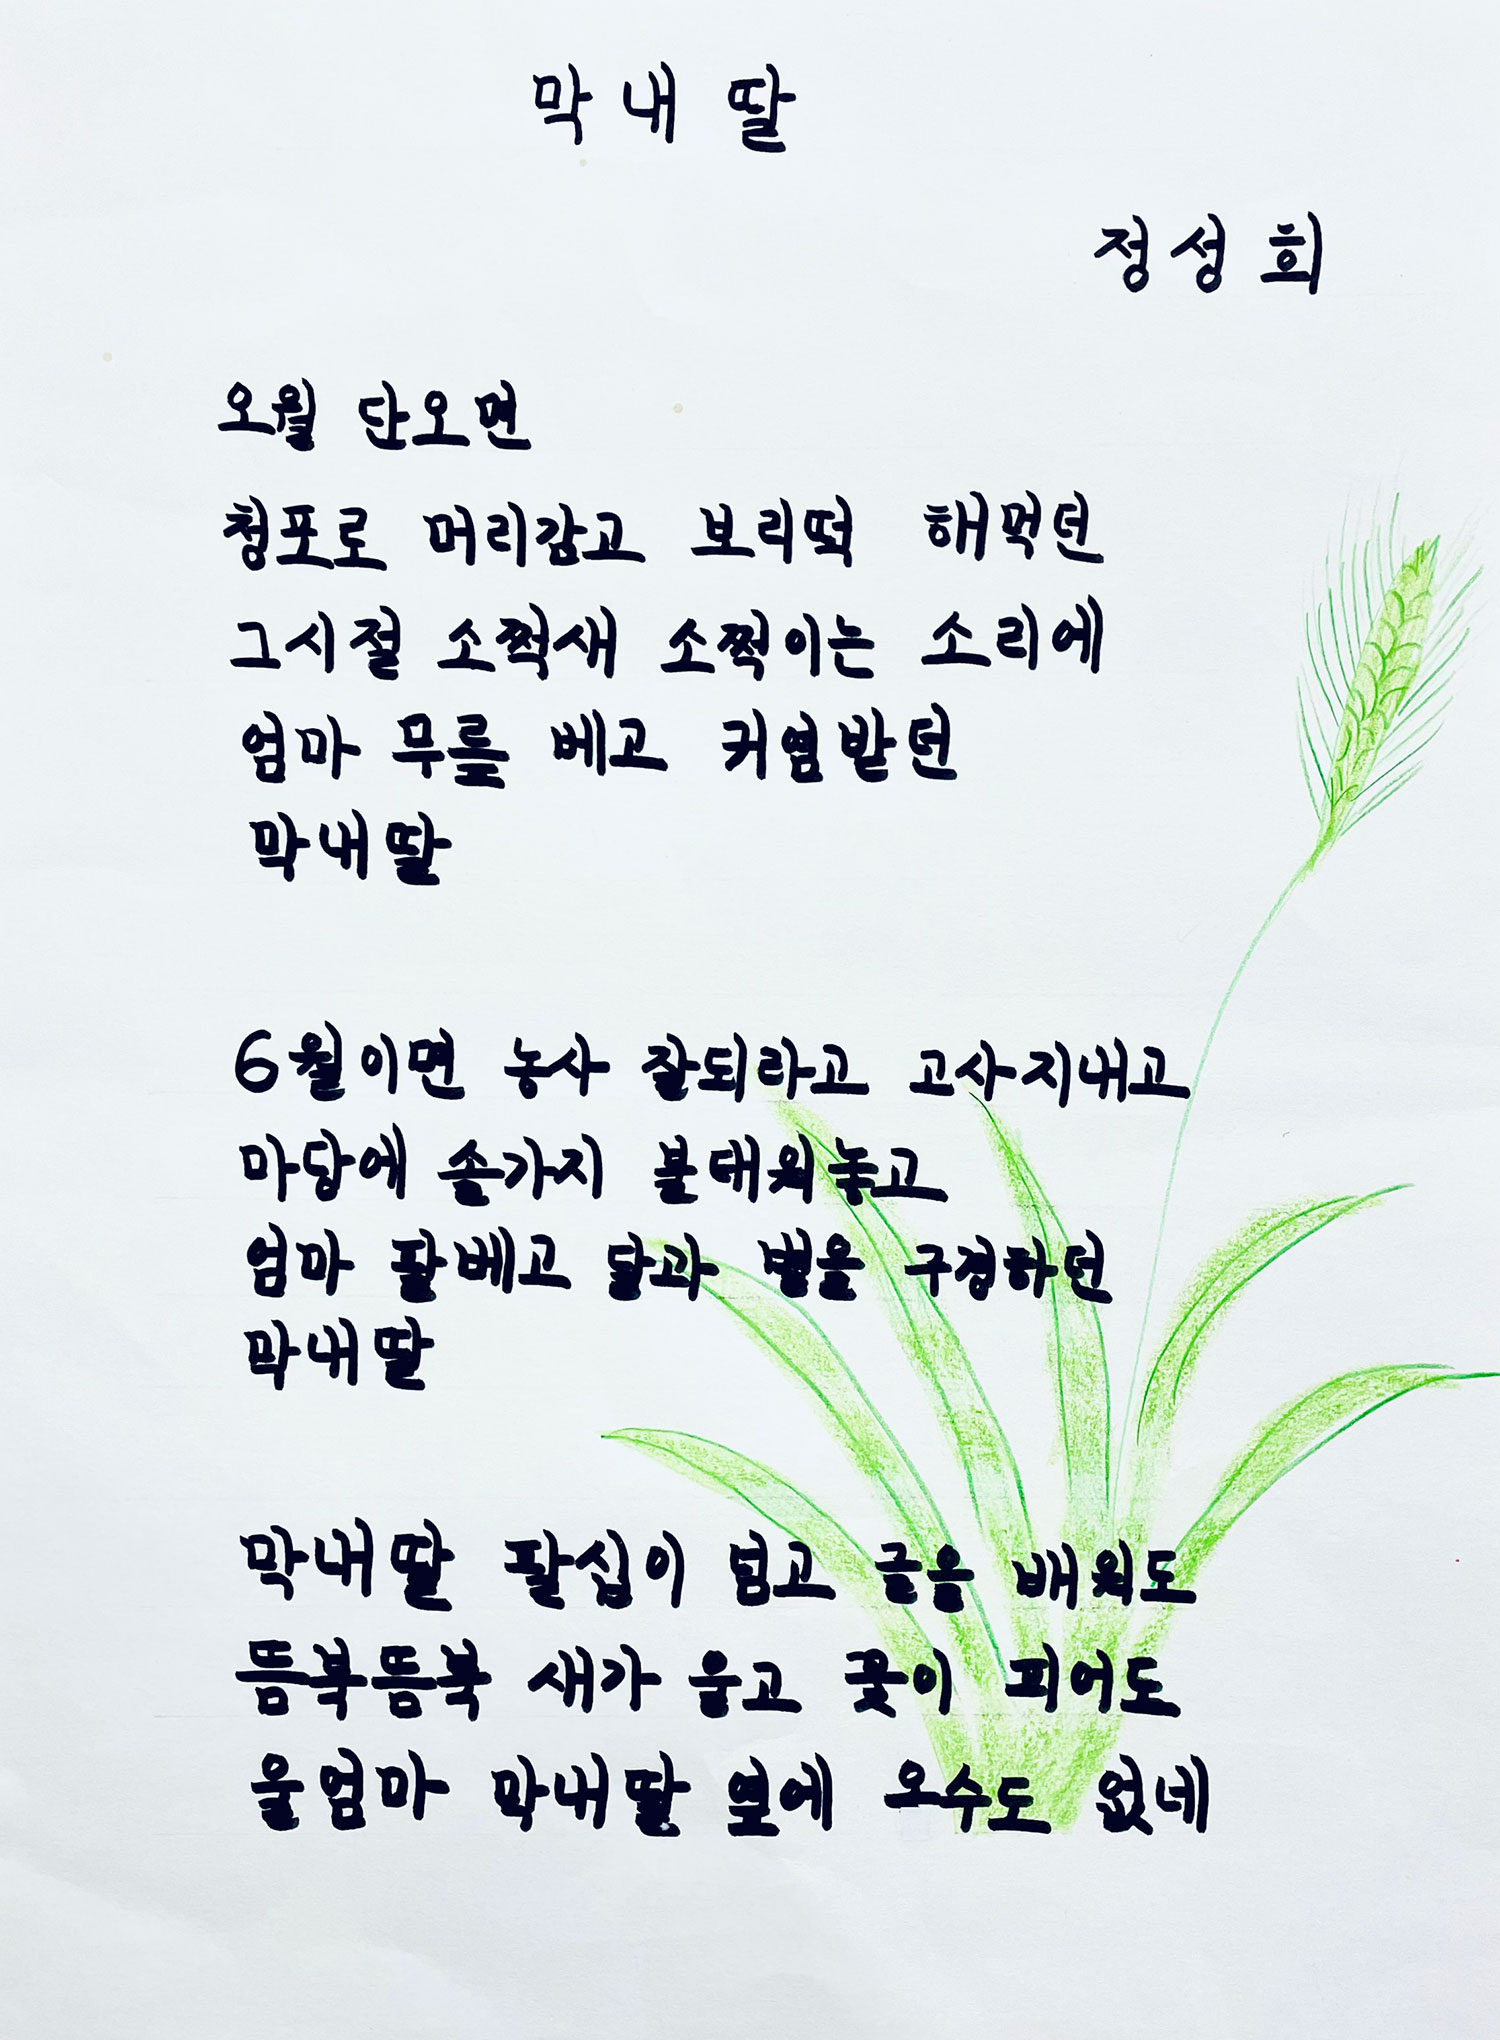 막내 딸
정성희
오월 단오면
청포로 머리감고 보리떡 해먹던
그시절 소쩍새 소쩍이는 소리에
엄마 무릎 베고 커염받던
막내딸
6월이면 농사 잘되라고 고사지내고
마당에 솔가지 불대워놓고
엄마 팔베고 달과 별을 구경하던
막내딸
막내딸 팔십이 넘고 글을 배워도
뜸북뜸북 새가 울고 꽃이 피어도
울엄마 막내딸 옆에 오수도 없네